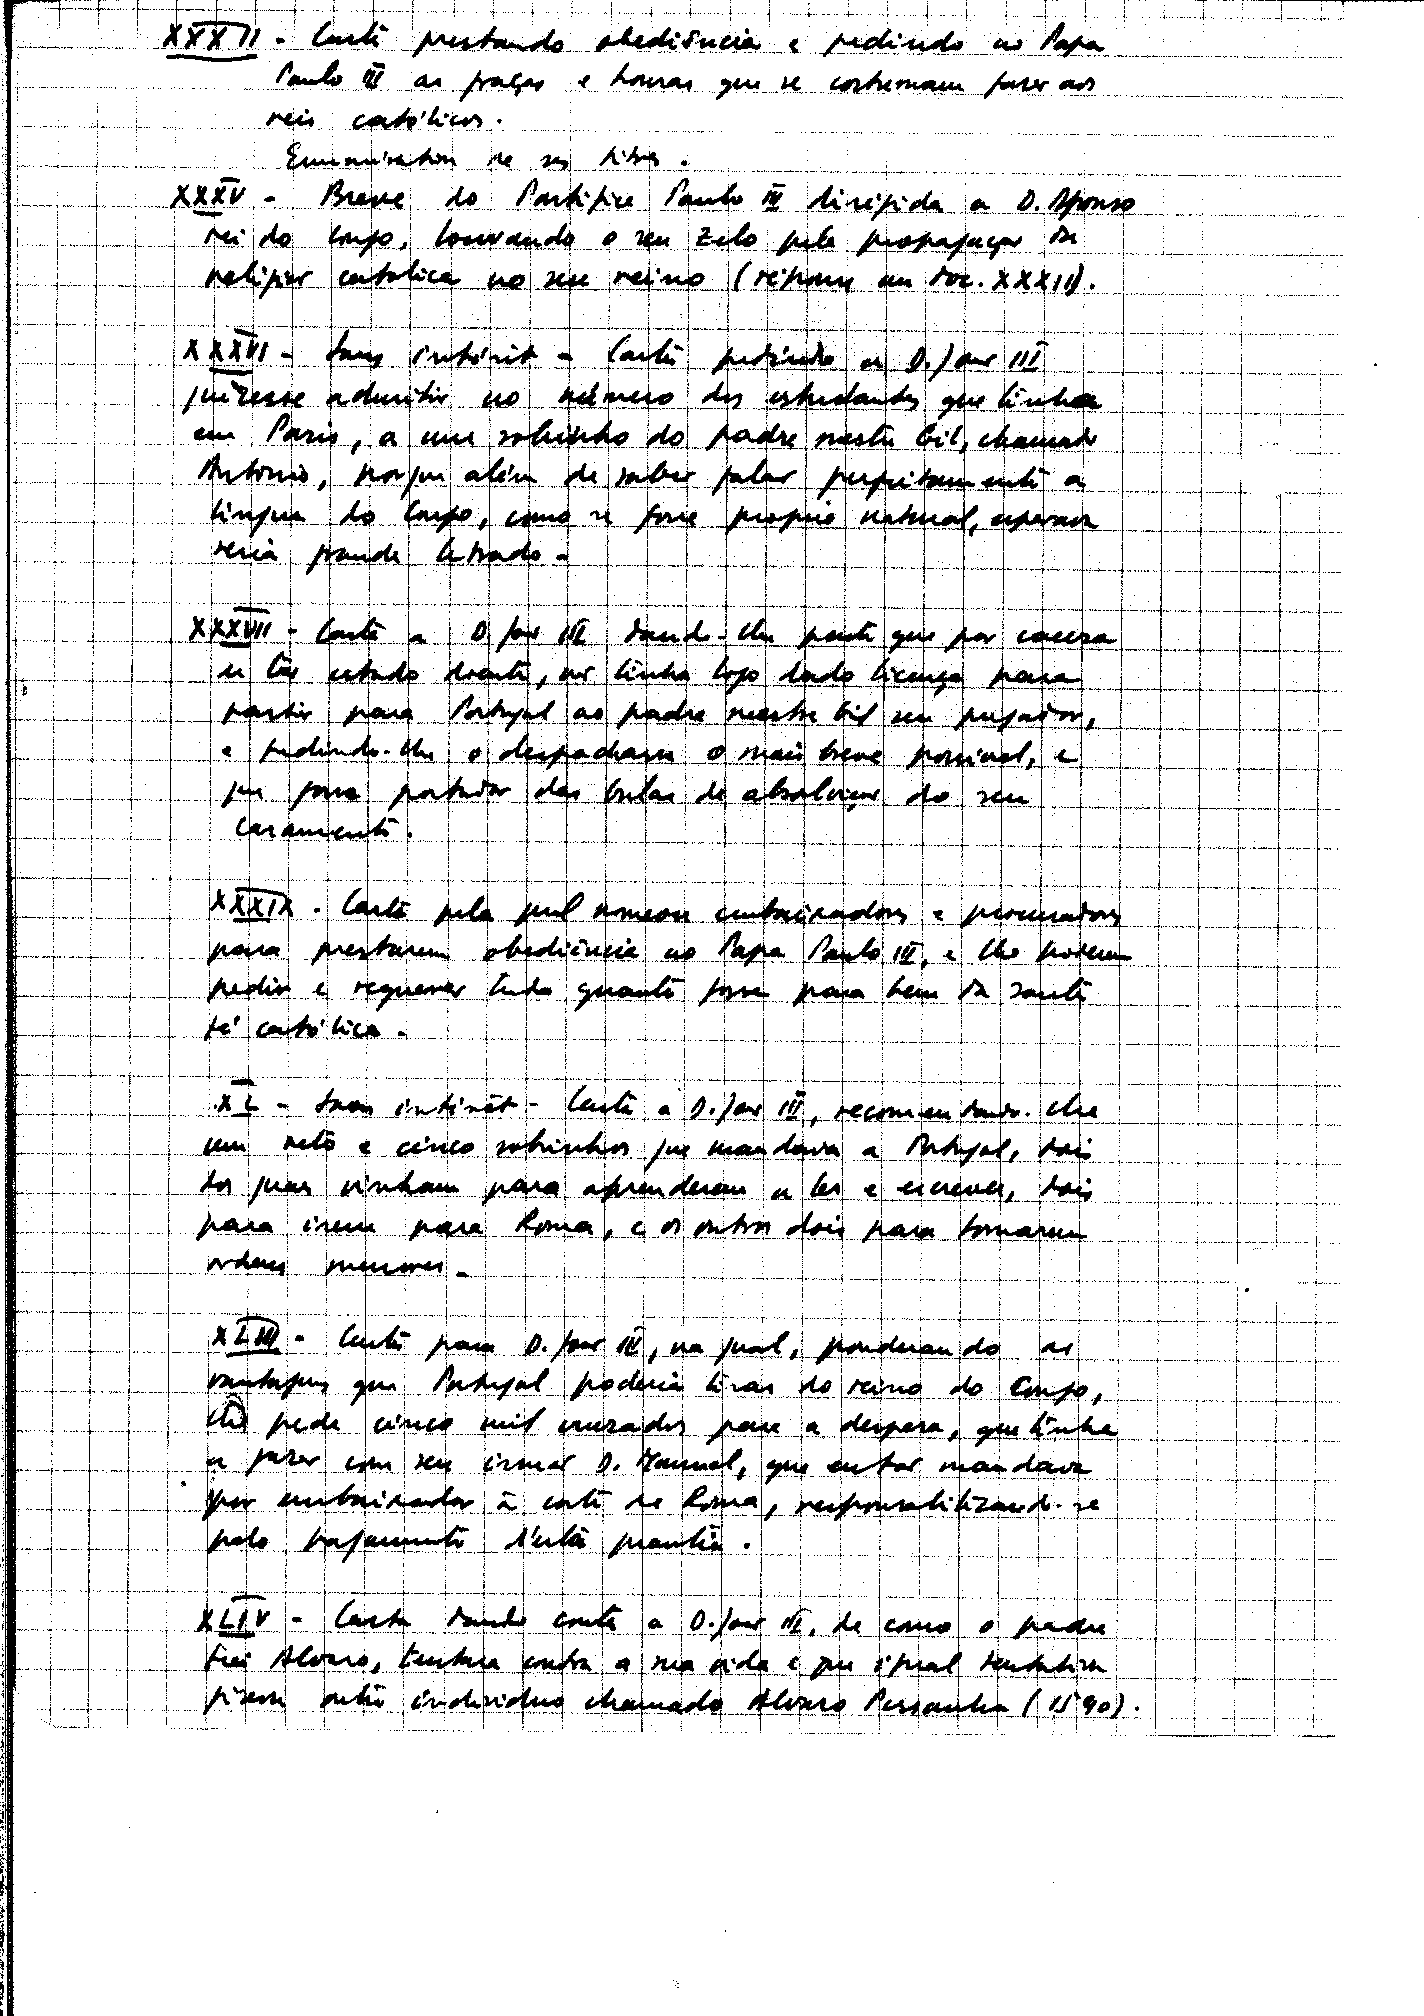 XXXII - Carta prestando obediência e pedindo ao Papa
Paulo III as graças e honras que se costumam fazer aos
reis católicos.
Enumération de ses titres.
XXXV - Breve do Pontifice Paulo III dirigida a D. Afonso
rei do Congo, louvando o seu zelo pela propagaçao da
religiao catolica no seu reino (réponse au doc. XXXII).
XXXVI - Sans intérêt - Carta pedindo a D. Joao III
quizesse admitir no número dos estudantes que tinha
em Paris, a um sobrinho do padre mestre Gil, chamado
António, porque além de saber falar perfeitamente a
lingua do Congo, como se fosse proprio natural, esperava
seria grande letrado -
XXXVII - Carta a D. Joao III dando-lhe parte que por causa
de ter estado doente, nao tinha logo dado licença para
partir para Portugal ao padre mestre Gil seu pregador,
e pedindo-lhe o despachasse o mais breve possivel, e
que fosse portador das bulas de absolviçao do seu
casamento.
XXXIX - Carta pela qual nomeou embaixadores e procuradores
para prestarem obediência ao Papa Paulo III, e lhe poderem
pedir e requerer tudo quanto fosse para bem da santa
fé católica -
XL - Sans intérêt - Carta a D. Joao III, recomendando-lhe
um neto e cinco sobrinhos que mandava a Portugal, dois
dos quais vinham para aprenderem a ler e escrever, dois
para irem para Roma, e os outros dois para tomarem
ordens menores -
XLIII - Carta para D. Joao III, na qual, ponderando as
vantagens que Portugal poderia tirar do reino do Congo,
lhe pede cinco mil cruzados para a despesa, que tinha
a fazer com seu irmao D. Manuel, que entao mandava
por embaixador à corte de Roma, responsabilizando-se
pelo pagamento d'esta quantia.
XLIV - Carta dando conta a D. Joao III, de como o padre
frei Alvaro, tentara contra a sua vida e que igual tentativa
fizera outro individuo chamado Alvaro Pessanha (1540).